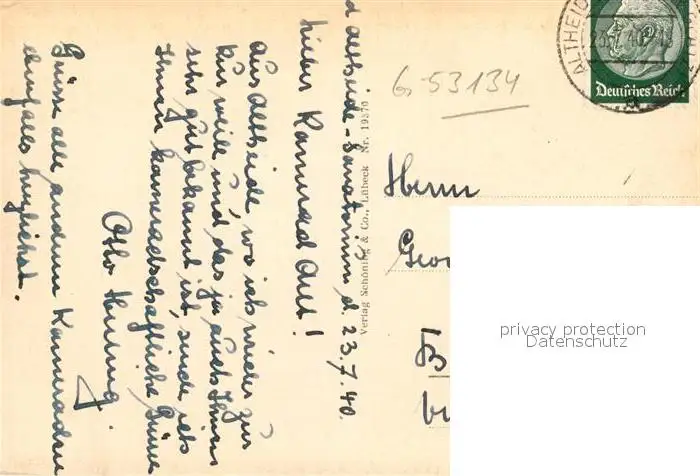 d Altheide-Sanatorium, d. 23.7.40.
Lieber Kamerad Aul!
Aus Altheide wo ich wieder zur
Kur weile und das ja auch Ihnen
sehr gut bekannt ist, sende ich
Ihnen kameradschaftliche Grüsse
Otto
Grüsse alle anderen Kameraden
ebenfalls herzlichst.
Verlag Schöning & Co., Lübeck Nr. 19370
G-53134
ALTHEID
Deutsches Reich
Herrn
Geor
B
privacy protection
Datenschutz